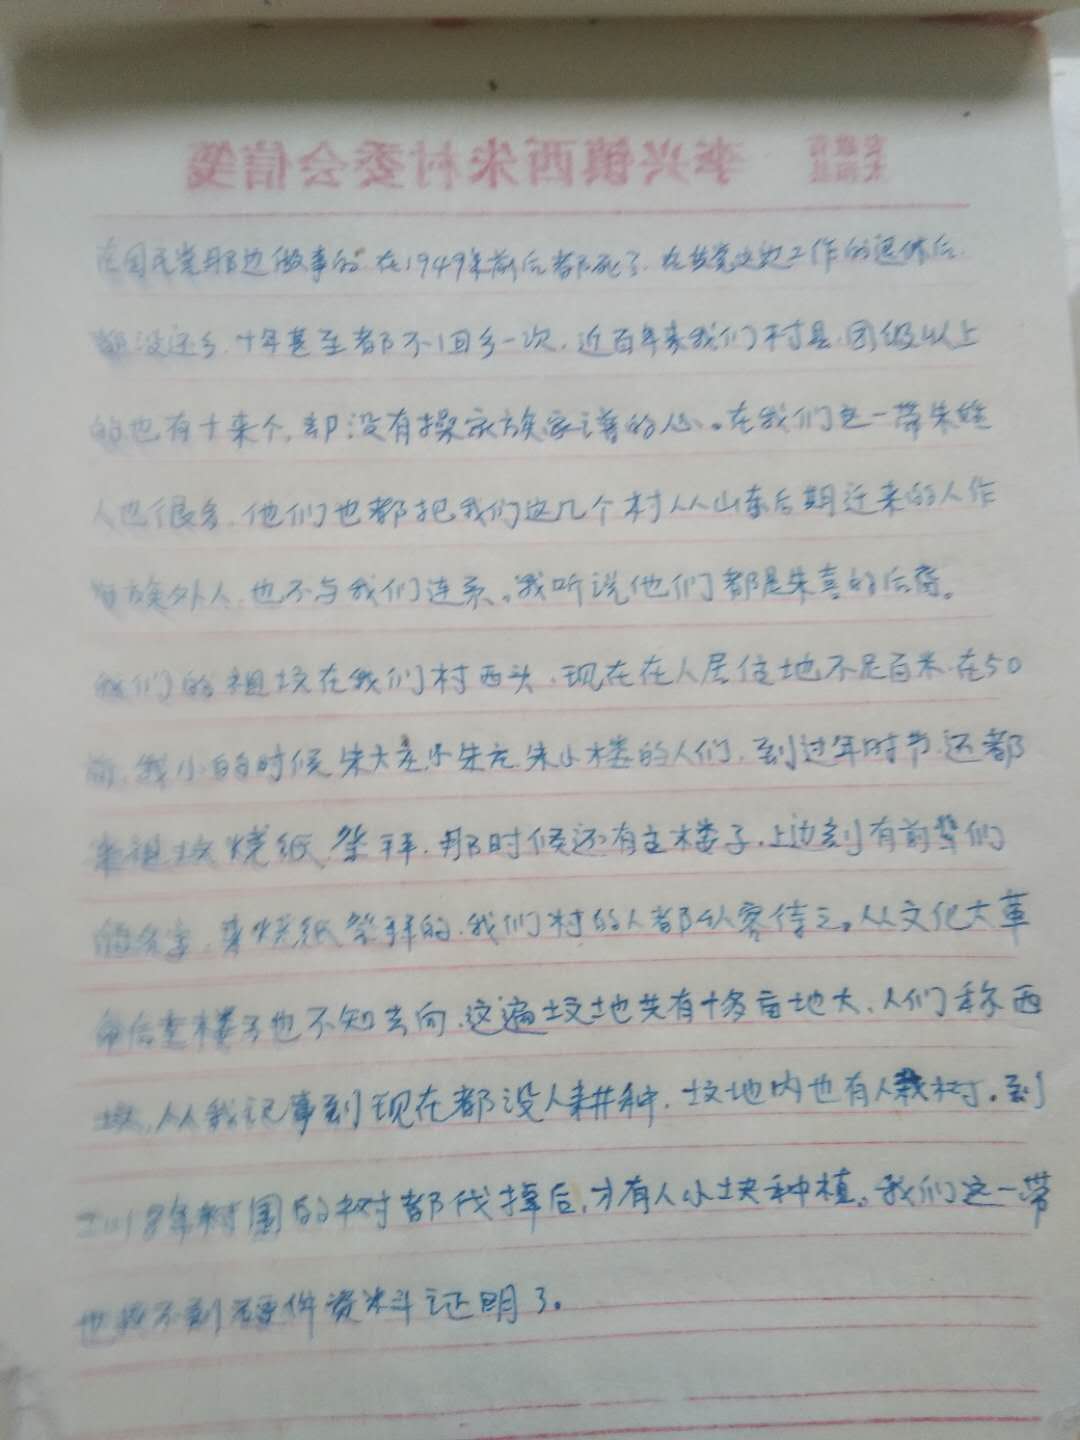 安徽省
太和县
李兴镇西朱村委会信笺
在国民党那边做事的.在1949年前后都死了.在共党这边工作的退休后.
都没还乡.十年甚至都不回乡一次.近百年来我们村县.团级以上
的也有十来个.却没有操家族家谱的心。在我们这一带朱姓
人也很多.他们也都把我们这几个村从山东后期迁来的人作
为族外人.也不与我们连系。我听说他们都是朱真的后裔。
我们的祖坟在我们村西头.现在在人居住地不足百米.在50
前.我小的时候朱大 小朱 朱小楼的人们.到过年时节.还都
来祖坟烧纸.祭拜.那时候还有主楼子.上边刻有前辈们
的名字.来烧纸祭拜的.我们村的人都以客待之。从文化大革
命后主楼子也不知去向.这遍坟地共有十多亩地大.人们称西
从我记事到现在都没人耕种.坟地内也有人栽树.到
2018年树围的树都伐掉后.才有人小块种植。我们这一带
也找不到硬件资料证明了。